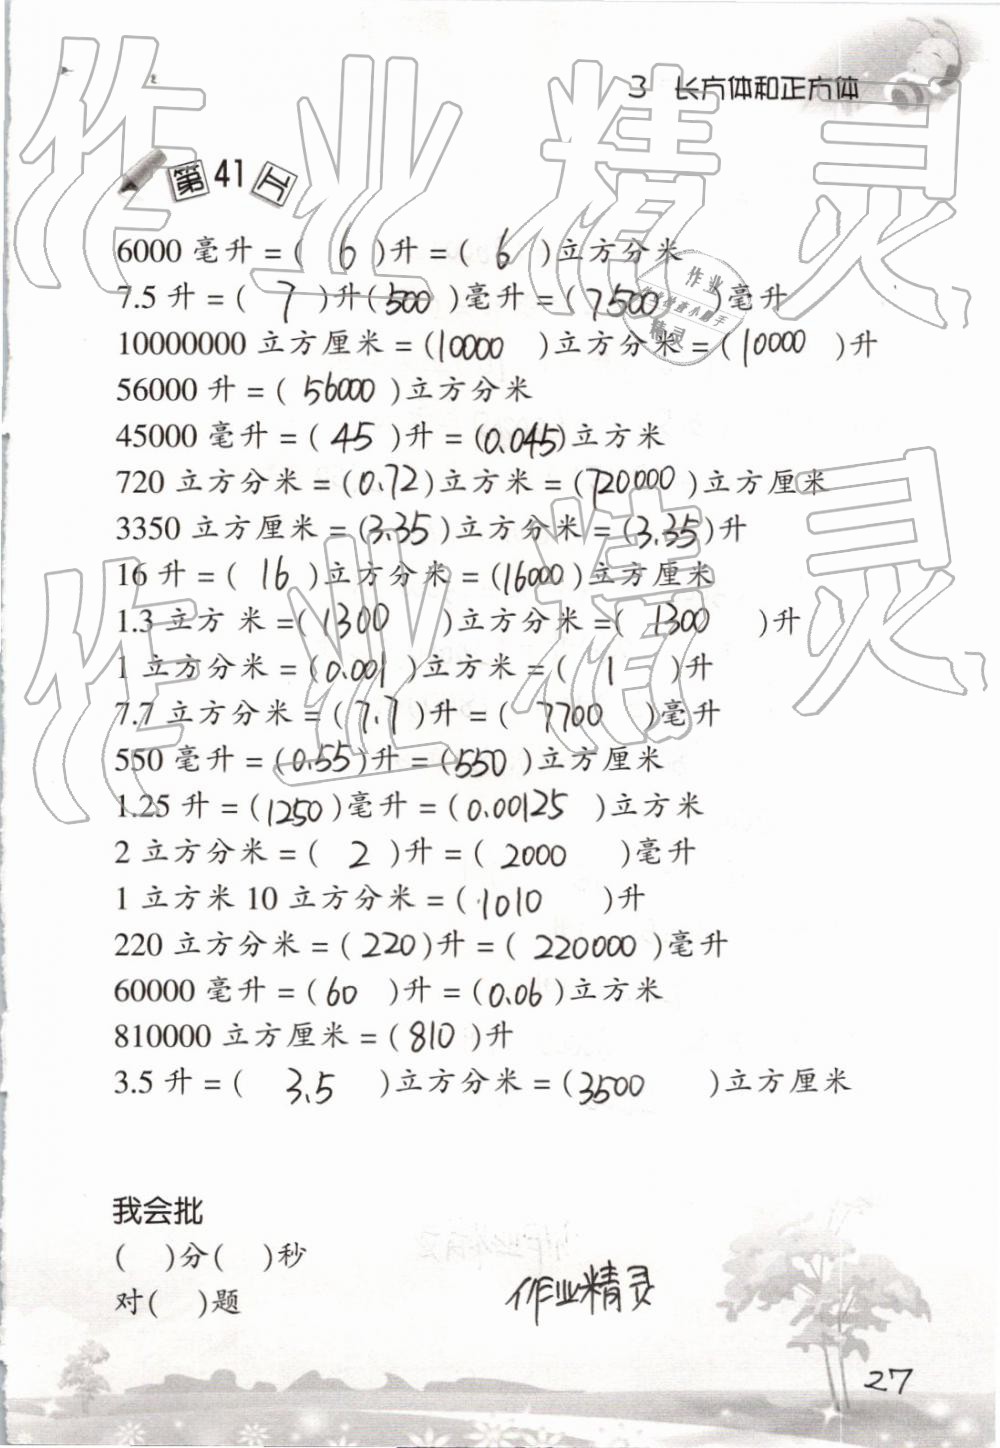 3 长方体和正方体
第41页
6000 毫升 = ( 6 )升 = ( 6 )立方分米
7.5 升 = ( 7 )升(500 )毫升 = ( 7500 )毫升
10000000 立方厘米 = (10000 )立方分米 = (10000 )升
56000 升 = ( 56000 )立方分米
45000 毫升 = ( 45 )升 = (0.045)立方米
720 立方分米 = (0.72)立方米 = (720000 )立方厘米
3350 立方厘米 = (3.35 )立方分米 = (3.35)升
16 升 = ( 16 )立方分米 = (16000 )立方厘米
1.3 立方 米 =( 1300 )立方分米 =( 1300 )升
1 立方分米 = (0.001 )立方米 = ( 1 )升
7.7 立方分米 = ( 7.7 )升 = ( 7700 )毫升
550 毫升 = (0.55)升 = (550 )立方厘米
1.25 升 = (1250 )毫升 = (0.00125 )立方米
2 立方分米 = ( 2 )升 = ( 2000 )毫升
1 立方米 10 立方分米 = ( 1010 )升
220 立方分米 = ( 220 )升 = ( 220000 )毫升
60000 毫升 = ( 60 )升 = (0.06 )立方米
810000 立方厘米 = ( 810 )升
3.5 升 = ( 3.5 )立方分米 = (3500 )立方厘米
我会批
( )分( )秒
对( )题
作业精灵
27
作业精灵
作业精灵
作业
精灵